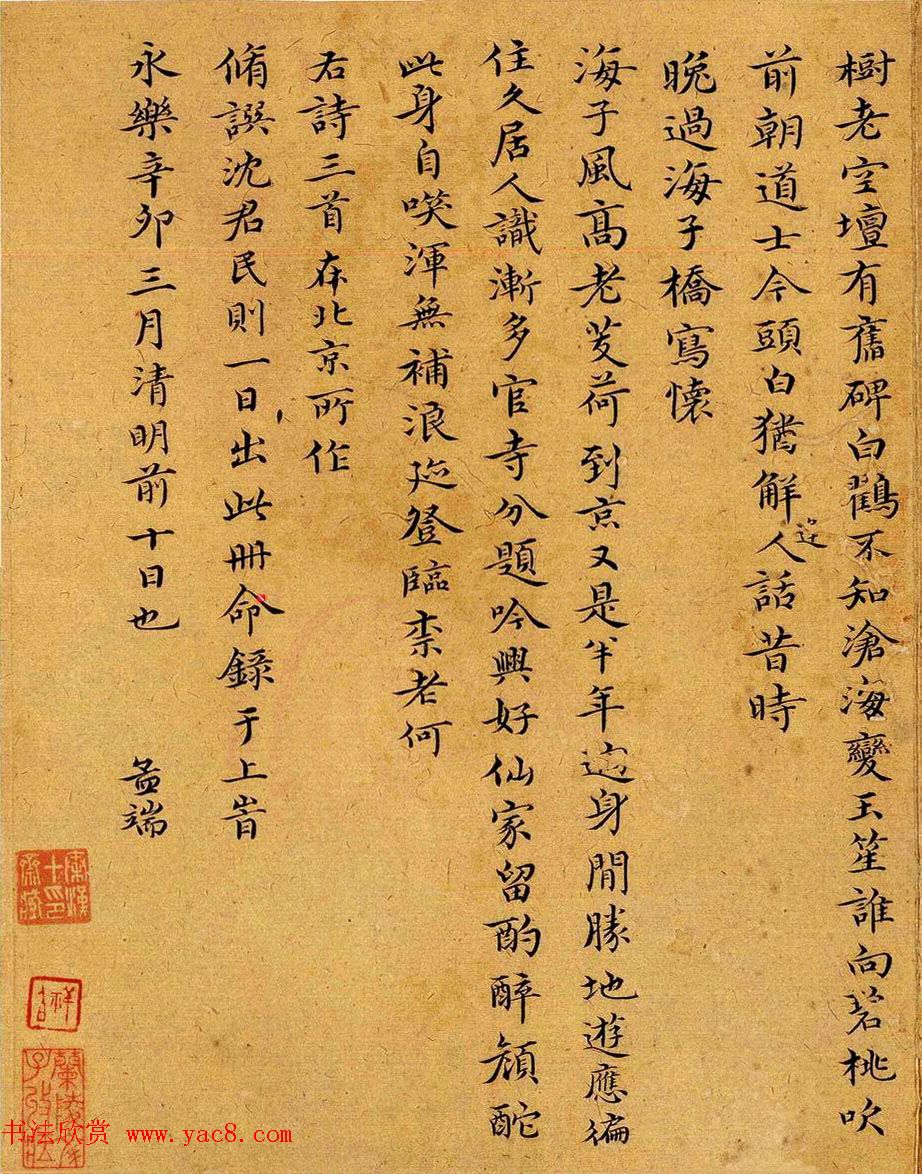 樹老空壇有舊碑白鸛不知滄海變玉笙誰向碧桃吹
前朝道士今頭白猶解人話昔時
晚過海子橋寫懷
海子風高老芰荷到京又是半年過身閒勝地遊應徧
住久居人識漸多官寺分題吟興好仙家留酌醉顏酡
此身自嘆渾無補浪迹登臨柰老何
右詩三首在北京所作
脩譔沈君民則一日出此冊命錄于上旹
永樂辛卯三月清明前十日也
孟端
书法欣赏 www.yac8.com